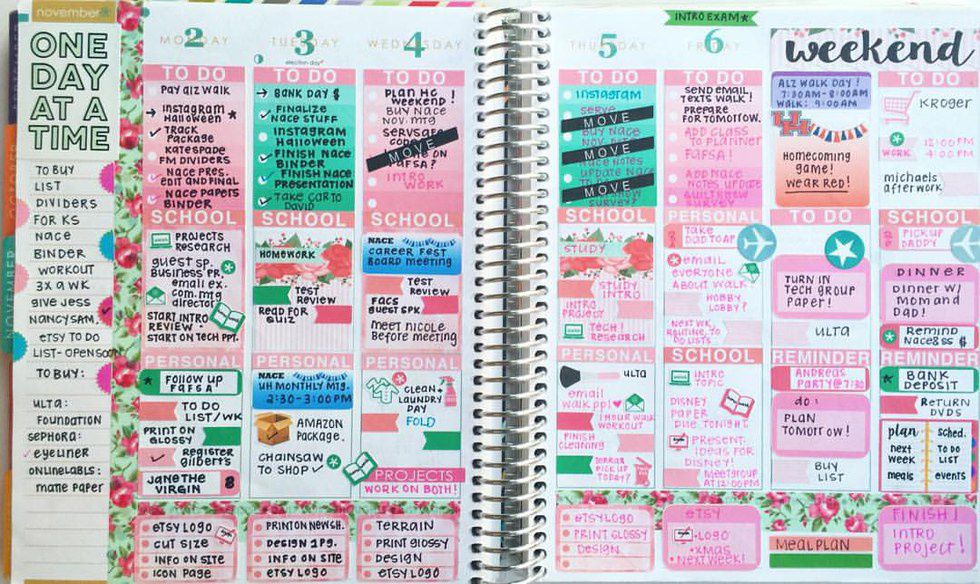 november
ONE
DAY
AT A
TIME
TO BUY
LIST
DIVIDERS
FOR KS
NACE
BINDER
WORKOUT
3X A WK
GIVE JESS
NANCY SAM.
ETSY TO DO
LIST-OPEN SOON
TO BUY:
ULTA:
FOUNDATION
SEPHORA:
eyeliner
ONLINELABLS:
matte paper
OCTOBER
NOVEMBER
2
MONDAY
TO DO
PAY ALZ WALK
INSTAGRAM
HALLOWEEN
TRACK
PACKAGE
KATESPADE
FM DIVIDERS
NACE PRES.
EDIT AND FINAL
NACE PAPERS
BINDER
SCHOOL
PROJECTS
RESEARCH
GUEST SP.
BUSINESS PR.
email ex.
com.mtg
director
START INTRO
REVIEW
START ON TECH PPT.
PERSONAL
FOLLOW UP
FAFSA
TO DO
LIST/WK
PRINT ON
GLOSSY
REGISTER
GILBERT'S
JANE THE
VIRGIN 8
ETSY LOGO
CUT SIZE
INFO ON SITE
ICON PAGE
3
TUESDAY
election day
TO DO
BANK DAY $
FINALIZE
NACE STUFF
INSTAGRAM
Halloween
FINISH NACE
BINDER
FINISH NACE
PRESENTATION
TAKE CAR TO
DAVID
SCHOOL
HOMEWORK
TEST
REVIEW
READ FOR
QUIZ
PERSONAL
NACE
UH MONTHLY MTG.
2:30-3:00PM
AMAZON
PACKAGE.
CHAINSAW
TO SHOP
PRINT ON NEWSH.
DESIGN 2PG.
INFO ON SITE
ETSY LOGO
4
WEDNESDAY
TO DO
PLAN HC
WEEKEND!
BUY NACE
NOV. MTG
SERVSAFE
MOVE
FAFSA?
INTRO
WORK
SCHOOL
NACE
CAREER FEST
BOARD MEETING
TEST
REVIEW
FACS
GUEST SPK.
MEET NICOLE
BEFORE MEETING
PERSONAL
CLEAN+
LAUNDRY
DAY
FOLD
PROJECTS
WORK ON BOTH!
TERRAIN
PRINT GLOSSY
DESIGN
ETSY LOGO
5
THURSDAY
TO DO
INSTAGRAM
SERVE
MOVE
BUY NACE
NOV. MTG
MOVE
NACE NOTES
UPDATE NACE
MOVE
SURVEY?
SCHOOL
STUDY
STUDY
INTRO
INTRO
PROJECT
TECH!
RESEARCH
PERSONAL
ULTA
email
walk ppl
1 HOUR WALK
WORKOUT
FINISH
CLEANING
PICK UP
TODAY?
ETSY LOGO
PRINT GLOSSY
DESIGN
INTRO EXAM
6
FRIDAY
TO DO
SEND EMAIL,
TEXTS WALK!
PREPARE
FOR TOMORROW.
ADD CLASS
TO PLANNER
FAFSA!
ADD NACE
NOTES UPDATE
SURVEY
PERSONAL
TAKE
DAD TO AP
email
everyone
ABOUT WALK
HOBBY
LOBBY?
NEXT WK.
ROUTINE, TO
DO LISTS
SCHOOL
INTRO
TOPIC
DISNEY
PAPER
DUE TONIGHT
PRESENT.
IDEAS FOR
DISNEY!
MEET GROUP
AT 12:00PM
ETSY
LOGO
XMAS
NEXT WEEK!
weekend
ALZ WALK DAY!
7:30AM-8:00AM
WALK: 9:00AM
UH
HOMECOMING
GAME!
WEAR RED!
TO DO
TURN IN
TECH GROUP
PAPER!
ULTA
REMINDER
ANDREA'S
PARTY@7:30
do:
PLAN
TOMORROW!
BUY
LIST
MEAL PLAN
KROGER
WORK
12:00PM
4:00PM
michaels
after work
SCHOOL
PICK UP
DADDY
DINNER
DINNER W/
MOM AND
DAD!
REMIND
NACE855 $
REMINDER
BANK
DEPOSIT
RETURN
DVDS
plan
next
week
meals
sched.
TO DO
LIST
events
FINISH!
INTRO
PROJECT!